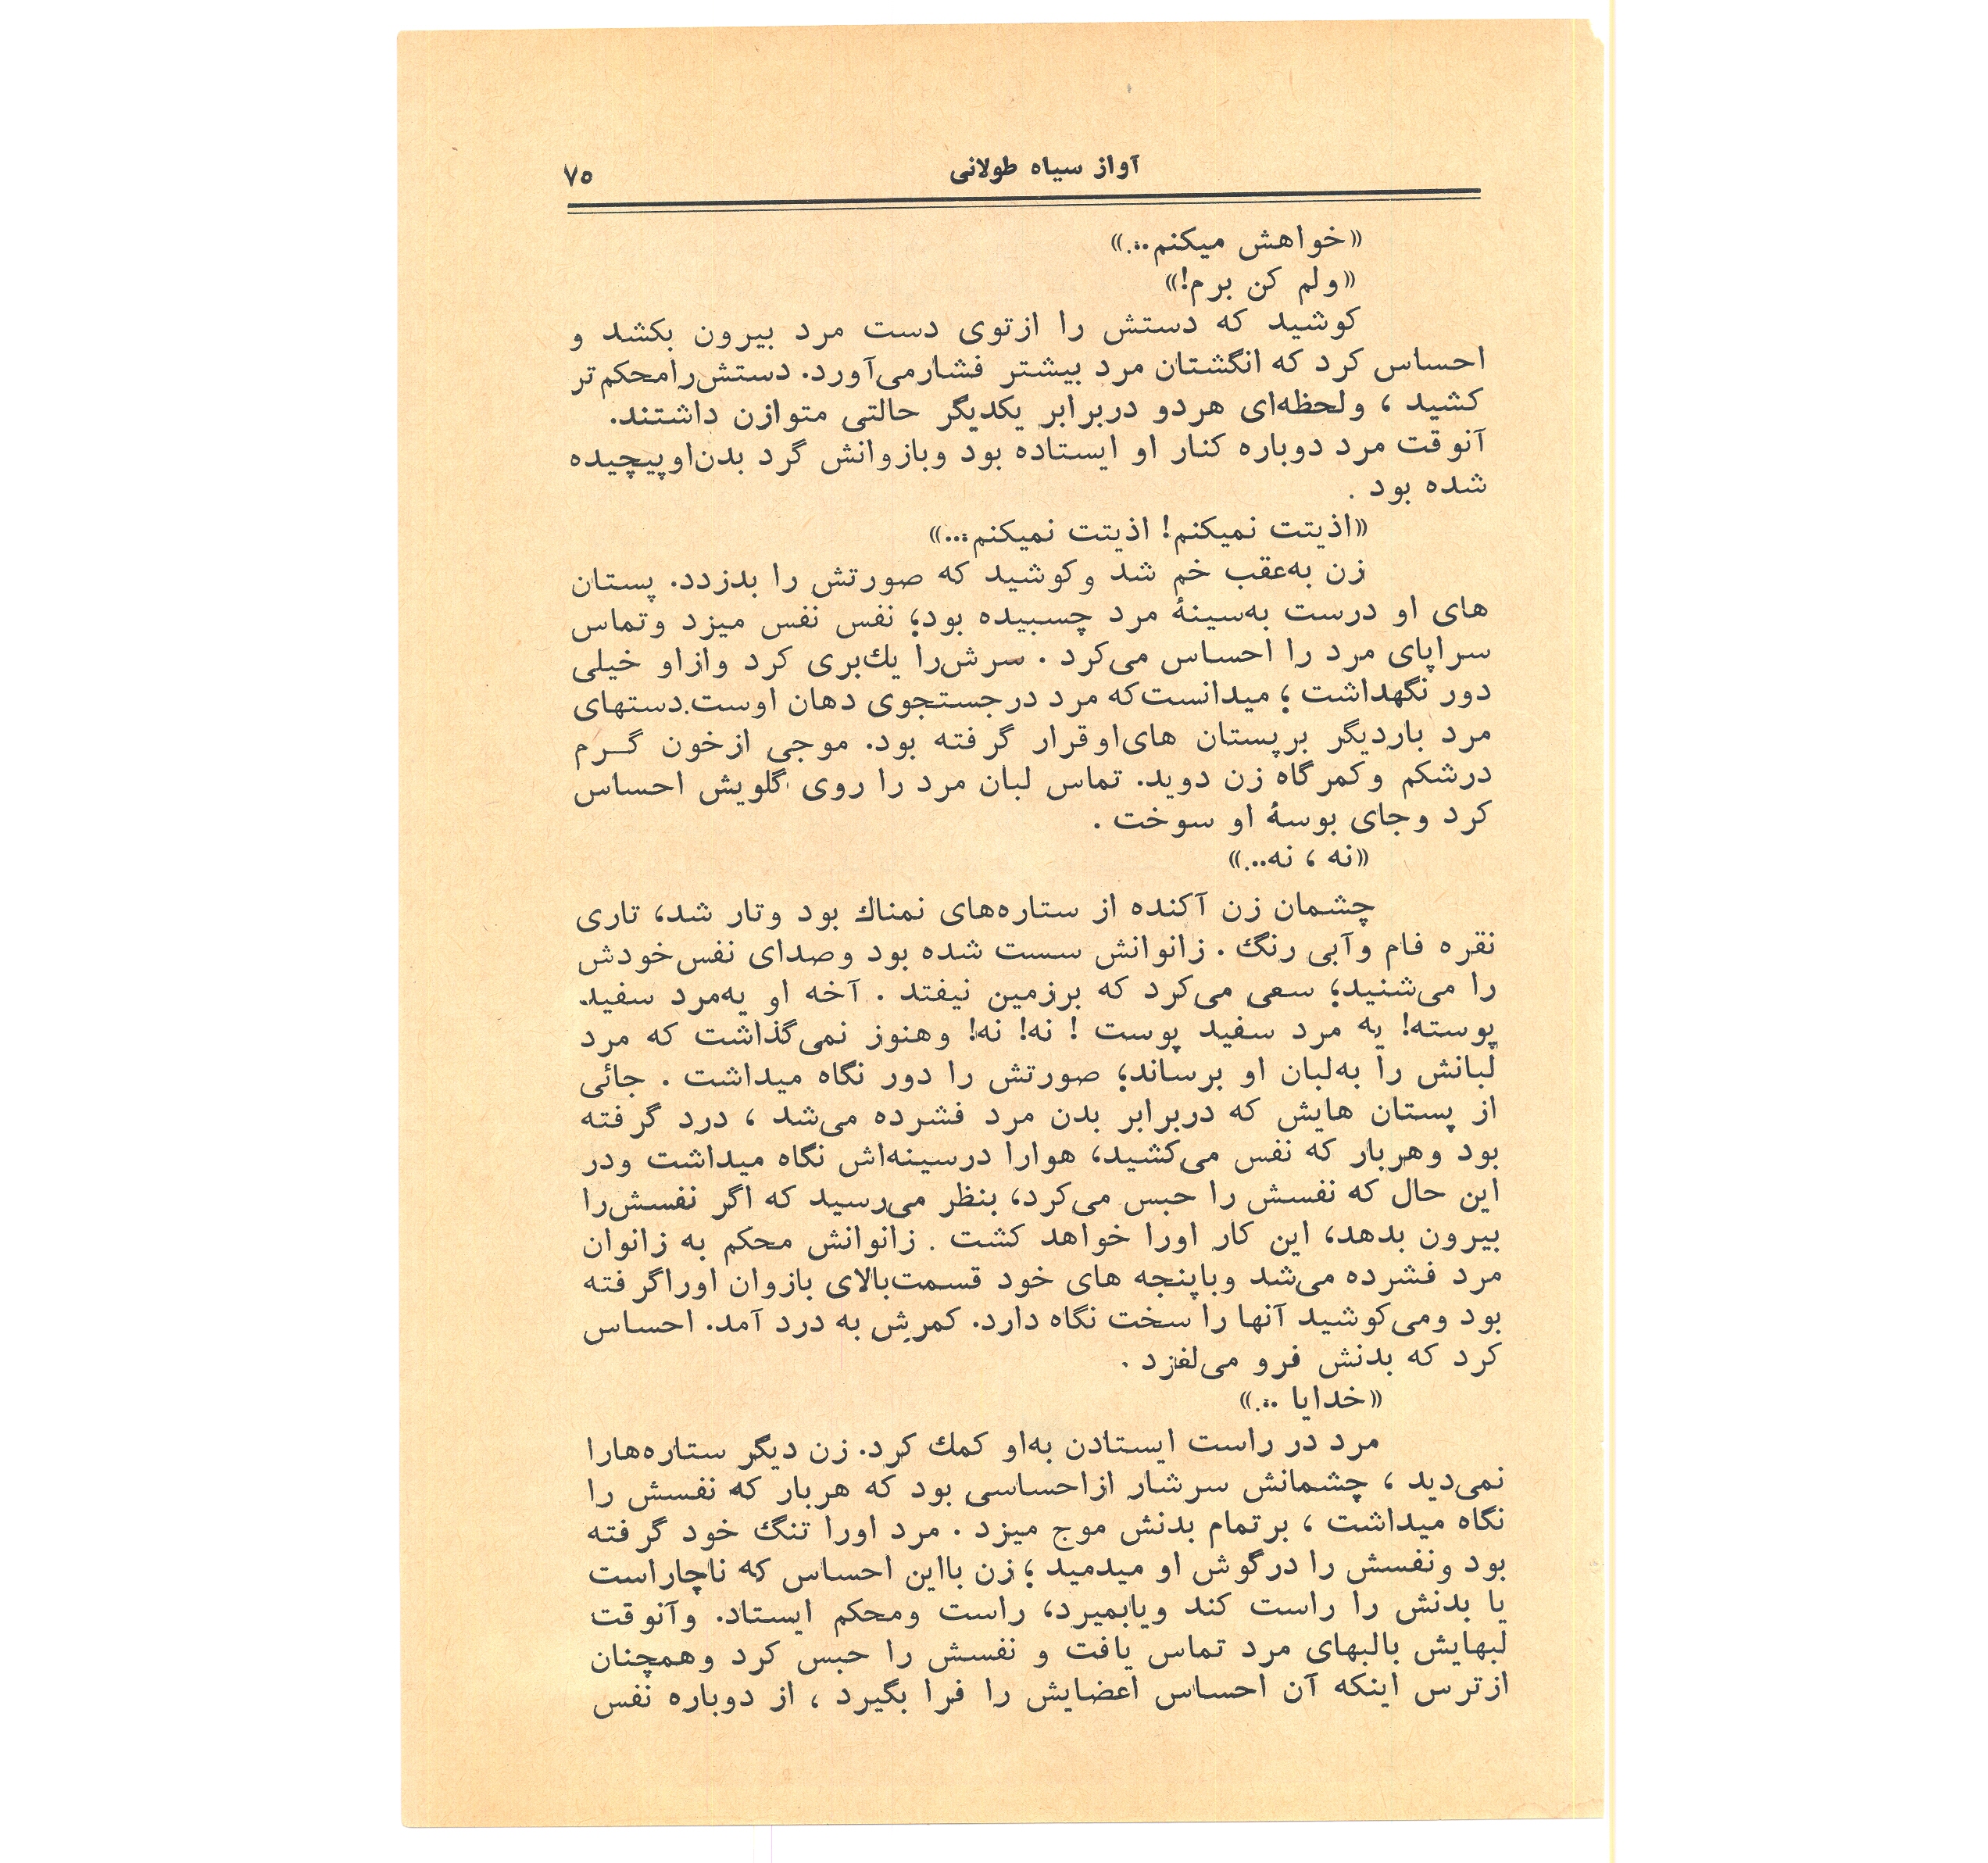 آواز سیاه طولانی
۷۵
«خواهش میکنم...»
«ولم کن برم!»
کوشید که دستش را ازتوی دست مرد بیرون بکشد و
احساس کرد که انگشتان مرد بیشتر فشارمی‌آورد. دستش‌رامحکم‌تر
کشید ، ولحظه‌ای هردو دربرابر یکدیگر حالتی متوازن داشتند.
آنوقت مرد دوباره کنار او ایستاده بود وبازوانش گرد بدن‌اوپیچیده
شده بود .
«اذیتت نمیکنم! اذیتت نمیکنم...»
زن به‌عقب خم شد وکوشید که صورتش را بدزدد. پستان
های او درست به‌سینهٔ مرد چسبیده بود؛ نفس نفس میزد وتماس
سراپای مرد را احساس می‌کرد . سرش‌را یك‌بری کرد وازاو خیلی
دور نگهداشت ؛ میدانست‌که مرد درجستجوی دهان اوست.دستهای
مرد باردیگر برپستان های‌اوقرار گرفته بود. موجی ازخون گـرم
درشکم وکمرگاه زن دوید. تماس لبان مرد را روی گلویش احساس
کرد وجای بوسهٔ او سوخت .
«نه ، نه...»
چشمان زن آکنده از ستاره‌های نمناك بود وتار شد، تاری
نقره فام وآبی رنگ . زانوانش سست شده بود وصدای نفس‌خودش
را می‌شنید؛ سعی می‌کرد که برزمین نیفتد . آخه او یه‌مرد سفید
پوسته! یه مرد سفید پوست ! نه! نه! وهنوز نمی‌گذاشت که مرد
لبانش را به‌لبان او برساند؛ صورتش را دور نگاه میداشت . جائی
از پستان هایش که دربرابر بدن مرد فشرده می‌شد ، درد گرفته
بود وهربار که نفس می‌کشید، هوارا درسینه‌اش نگاه میداشت ودر
این حال که نفسش را حبس می‌کرد، بنظر می‌رسید که اگر نفسش‌را
بیرون بدهد، این کار اورا خواهد کشت . زانوانش محکم به زانوان
مرد فشرده می‌شد وباپنجه های خود قسمت‌بالای بازوان اوراگرفته
بود ومی‌کوشید آنها را سخت نگاه دارد. کمرش به درد آمد. احساس
کرد که بدنش فرو می‌لغزد .
«خدایا ...»
مرد در راست ایستادن به‌او کمك کرد. زن دیگر ستاره‌هارا
نمی‌دید ، چشمانش سرشار ازاحساسی بود که هربار که نفسش را
نگاه میداشت ، برتمام بدنش موج میزد . مرد اورا تنگ خود گرفته
بود ونفسش را درگوش او میدمید ؛ زن بااین احساس که ناچاراست
یا بدنش را راست کند ویابمیرد، راست ومحکم ایستاد. وآنوقت
لبهایش بالبهای مرد تماس یافت و نفسش را حبس کرد وهمچنان
ازترس اینکه آن احساس اعضایش را فرا بگیرد ، از دوباره نفس